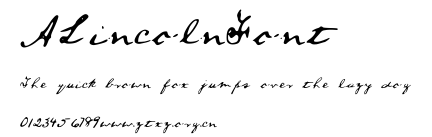 ALincolnFont
The quick brown fox jumps over the lazy dog
0123456789www.ztxz.org.cn